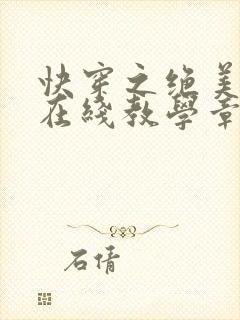 快穿之绝美
在线教学章
石倩